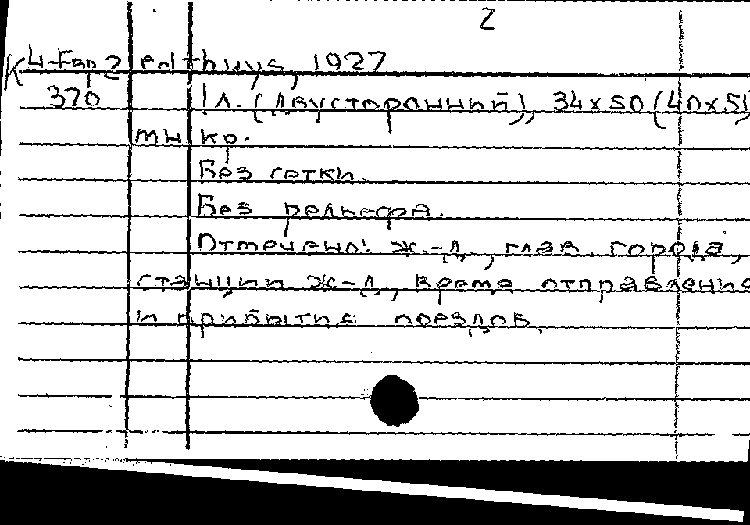 2
К 4-Евр2 edthuys, 1927
370 1 л. (двусторонний), 34x50 (40x51
мн. кр.
Без сетки.
Без рельефа.
Отмечено: ж.-д., глав. города,
станции ж-д, время отправления
и прибытия поездов.